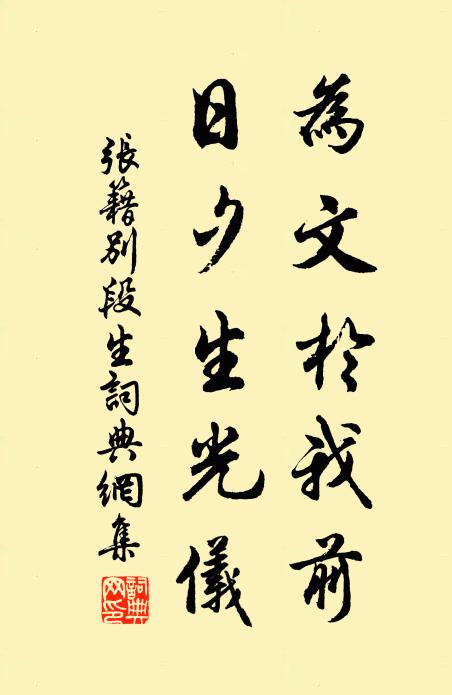 為文於我前
日夕生光儀
張籍別段生詞典網集
詞典网印